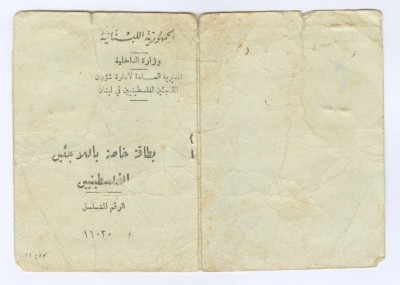 الجمهورية اللبنانية
وزارة الداخلية
المديرية العامة لادارة شؤون
اللاجئين الفلسطينيين في لبنان
بطاقة خاصة باللاجئين
الفلسطينيين
الرقم المتسلسل
١٦٠٢٠